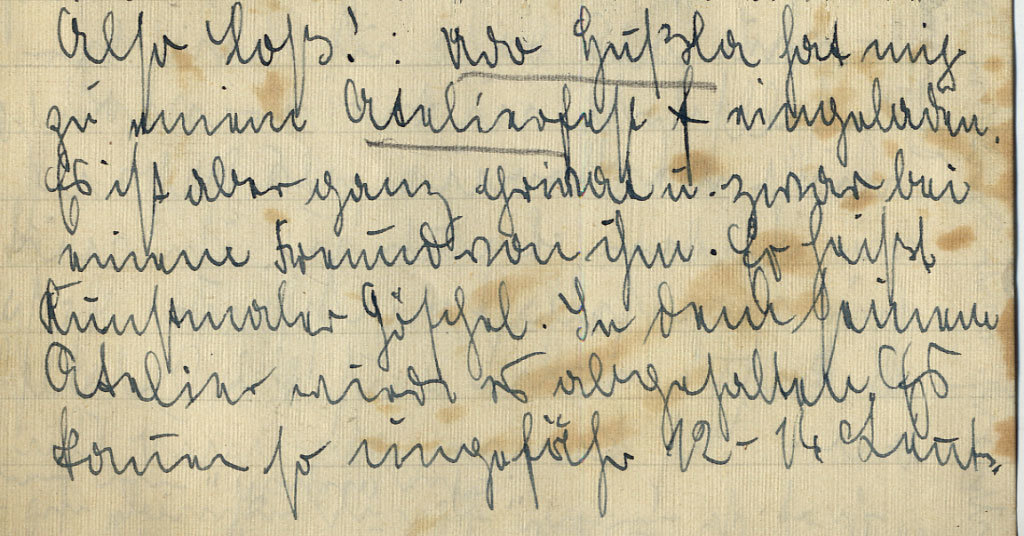 Also Loß! : Ado Hußla hat mich
zu einem Atelierfest eingeladen.
Es ist aber ganz privat u. zwar bei
einem Freund von ihm. Er heißt
Kunstmaler Göschel. In dem seinem
Atelier wird es abgehalten. Es
kamen so ungefähr 12 - 14 Leute.